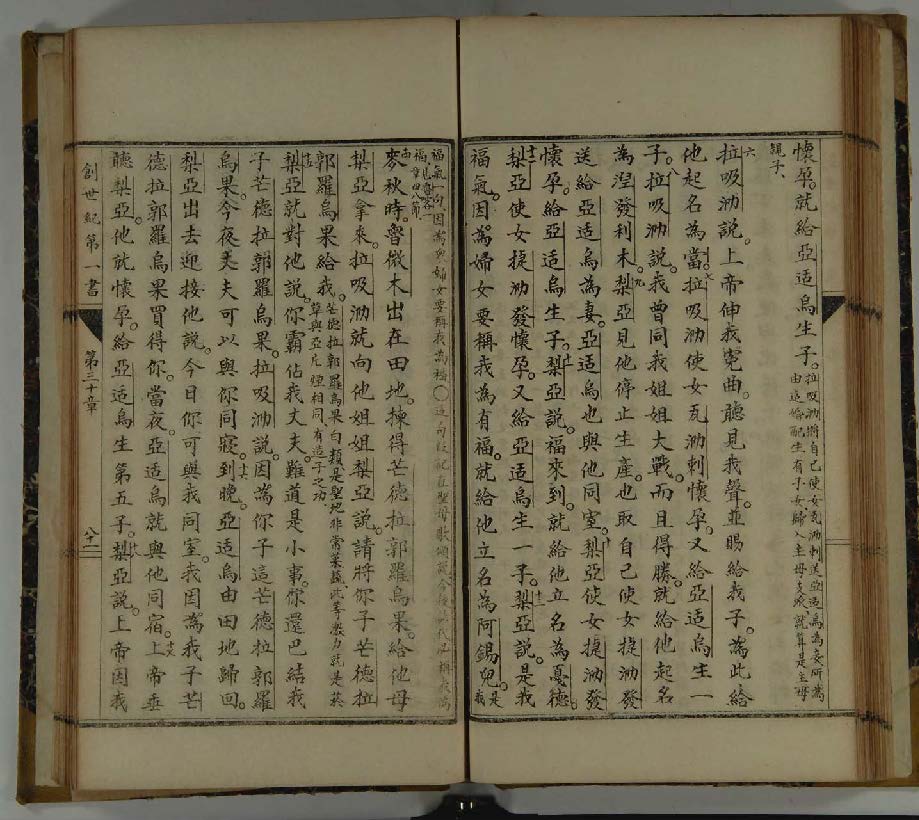 懷孕。就給亞适烏生子。拉吸泐將自己使女瓦泐刺送亞适烏為妾所為
由這婚配生有子女歸入主母支派、就算是主母
親子、
六
拉吸泐說。上帝伸我寃曲。聽見我聲。並賜給我子。為此給
他起名為當。七拉吸泐使女瓦泐刺懷孕。又給亞适烏生一
子。八拉吸泐說。我曾同我姐姐大戰。而且得勝。就給他起名
為湼發利木。九梨亞見他停止生產。也取自己使女捷泐發
送給亞适烏為妾。亞适烏也與他同室。梨亞使女捷泐發
懷孕。給亞适烏生子。十一梨亞說。福來到。就給他立名為憂德。
十二梨亞使女捷泐發懷孕。又給亞适烏生一子。十三梨亞說。是我
福氣。因為婦女要稱我為有福。就給他立名為阿錫兒。是我
福氣一句、因為兒婦女要稱我為福〇這句收配在聖母歌頌簫今後萬代兒稱我為
福、見魯喀一章四八節、
十四
麥秋時。魯微木出在田地。揀得芒德拉郭羅烏果。給他母
梨亞拿來。拉吸泐就向他姐姐梨亞說。請將你子芒德拉
郭羅烏果給我。芒德拉郭羅烏果句類是聖地非常菜蔬、此等潑力就是菸
草與亞片煙相同、有造子之功、
十五
梨亞就對他說。你霸佔我丈夫。難道是小事。你還巴結我
子芒德拉郭羅烏果。拉吸泐說。因為你子這芒德拉郭羅
烏果。今夜丈夫可以與你同寢。十六到晚。亞适烏由田地歸回。
梨亞出去迎接他說。今日你可與我同室。我因為我子芒
德拉郭羅烏果買得你。當夜。亞适烏就與他同宿。十七上帝垂
聽梨亞。他就懷孕。給亞适烏生第五子。十八梨亞說。上帝因我
創世紀第一書
第三十章
八十一